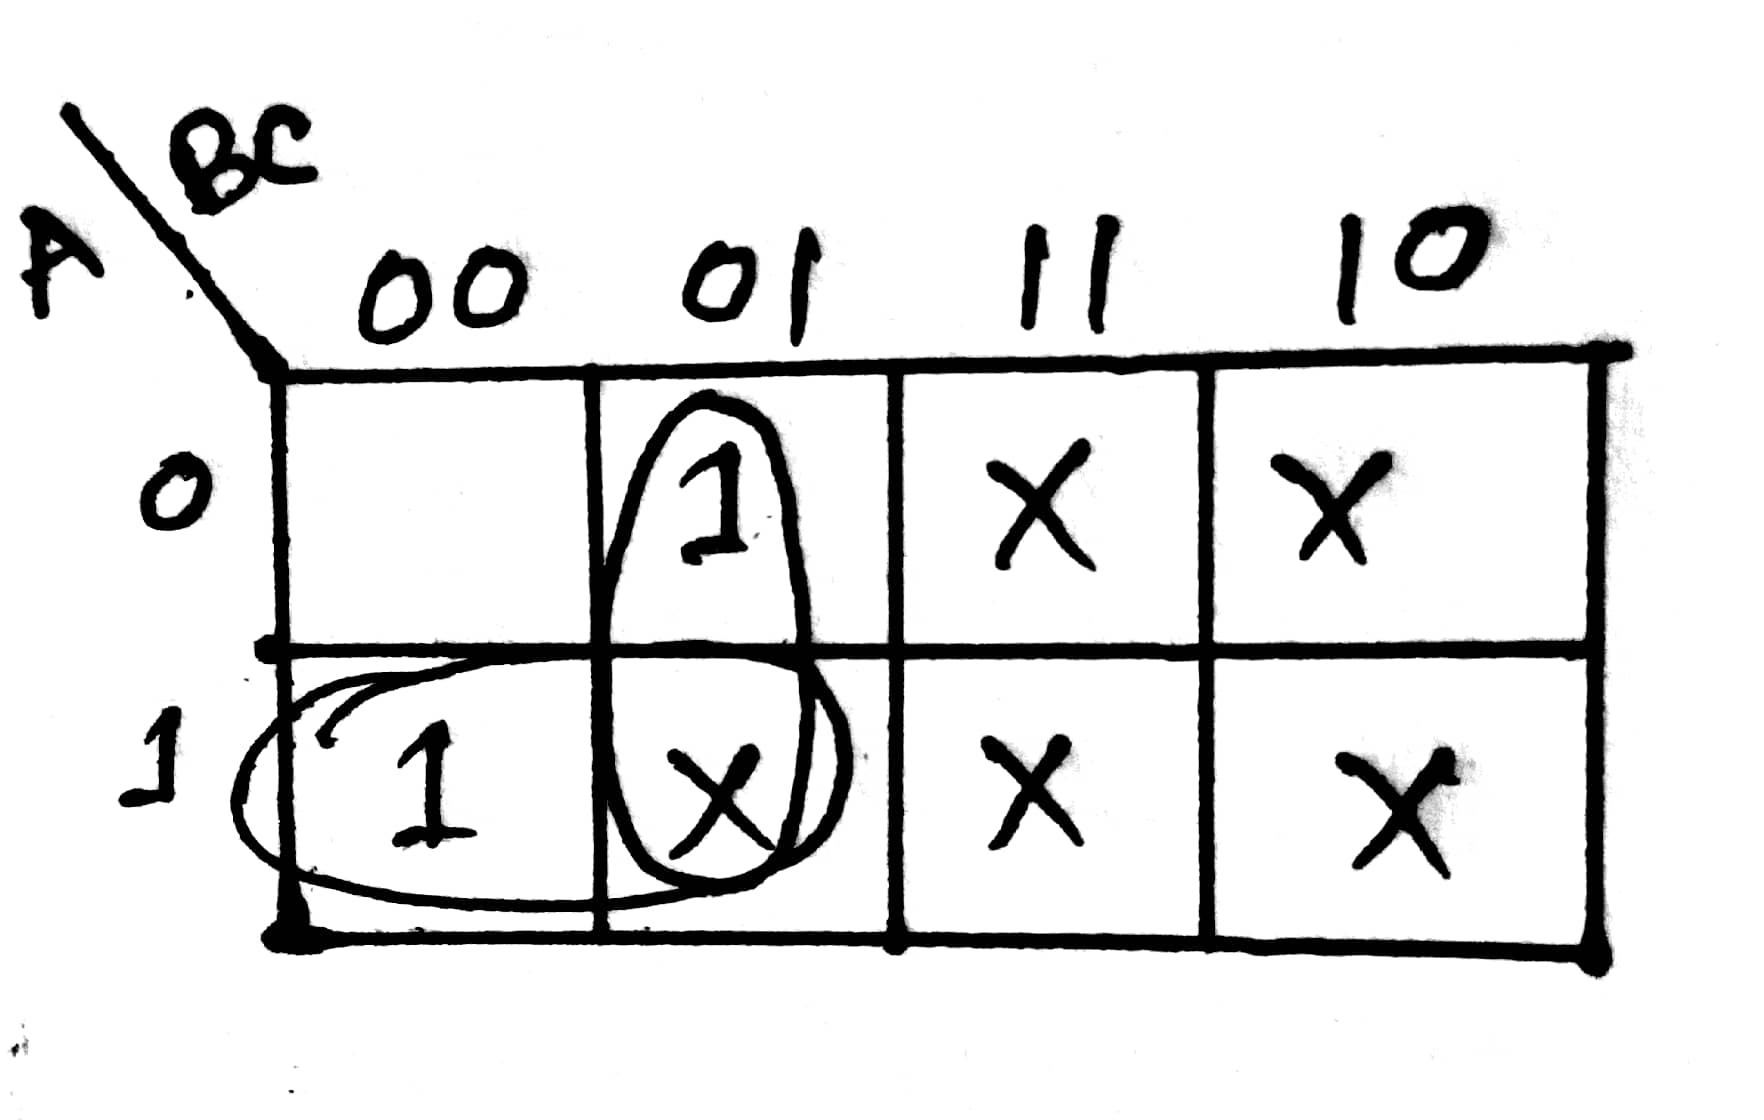 BC
A
00 01 11 10
0 1 X X
1 1 X X X